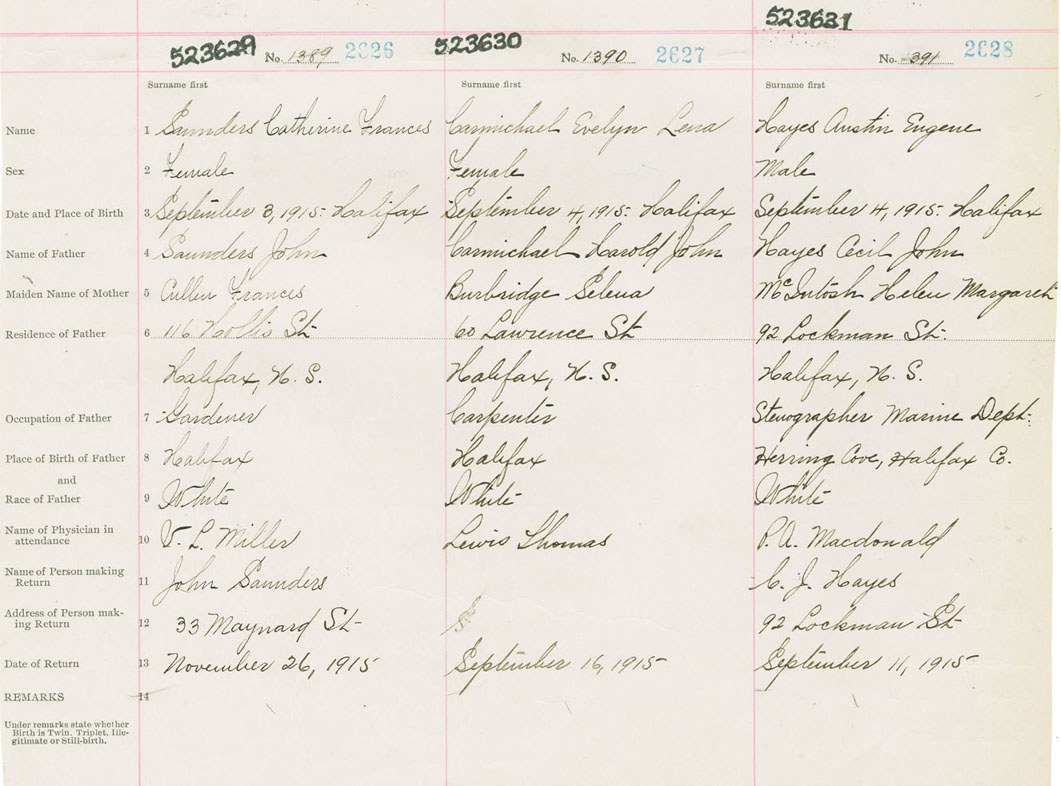 523629 523630 523631
No. 1389 2626 No. 1390 2627 No. 391 2628
Surname first Surname first Surname first
Name 1 Saunders Catherine Frances Carmichael Evelyn Lena Hayes Austin Eugene
Sex 2 Female Female Male
Date and Place of Birth 3 September 3, 1915 Halifax September 4, 1915 Halifax September 4, 1915 Halifax
Name of Father 4 Saunders John Carmichael Harold John Hayes Cecil John
Maiden Name of Mother 5 Cullen Frances Burbridge Selena McIntosh Helen Margaret
Residence of Father 6 116 Hollis St 60 Lawrence St 92 Lockman St.
Halifax, N. S. Halifax, N. S. Halifax, N. S.
Occupation of Father 7 Gardener Carpenter Stenographer Marine Dept.
Place of Birth of Father 8 Halifax Halifax Herring Cove, Halifax Co.
and
Race of Father 9 White White White
Name of Physician in
attendance 10 V. L. Miller Lewis Thomas P. A. Macdonald
Name of Person making
Return 11 John Saunders C. J. Hayes
Address of Person mak-
ing Return 12 33 Maynard St 92 Lockman St
Date of Return 13 November 26, 1915 September 16, 1915 September 11, 1915
REMARKS 14
Under remarks state whether
Birth is Twin. Triplet, Ille-
gitimate or Still-birth.